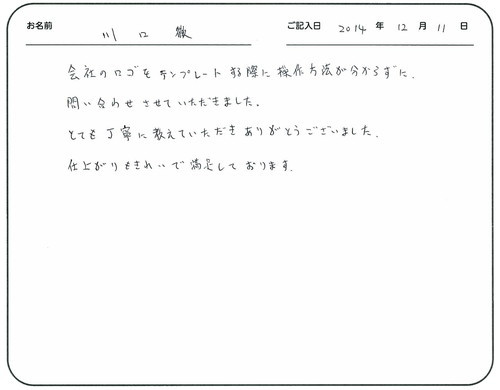 お名前 川口 徹 ご記入日 2014 年 12 月 11 日
会社のロゴをテンプレートする際に操作方法が分からずに、
問い合わせさせていただきました。
とても丁寧に教えていただきありがとうございました。
仕上がりもきれいで満足しております。